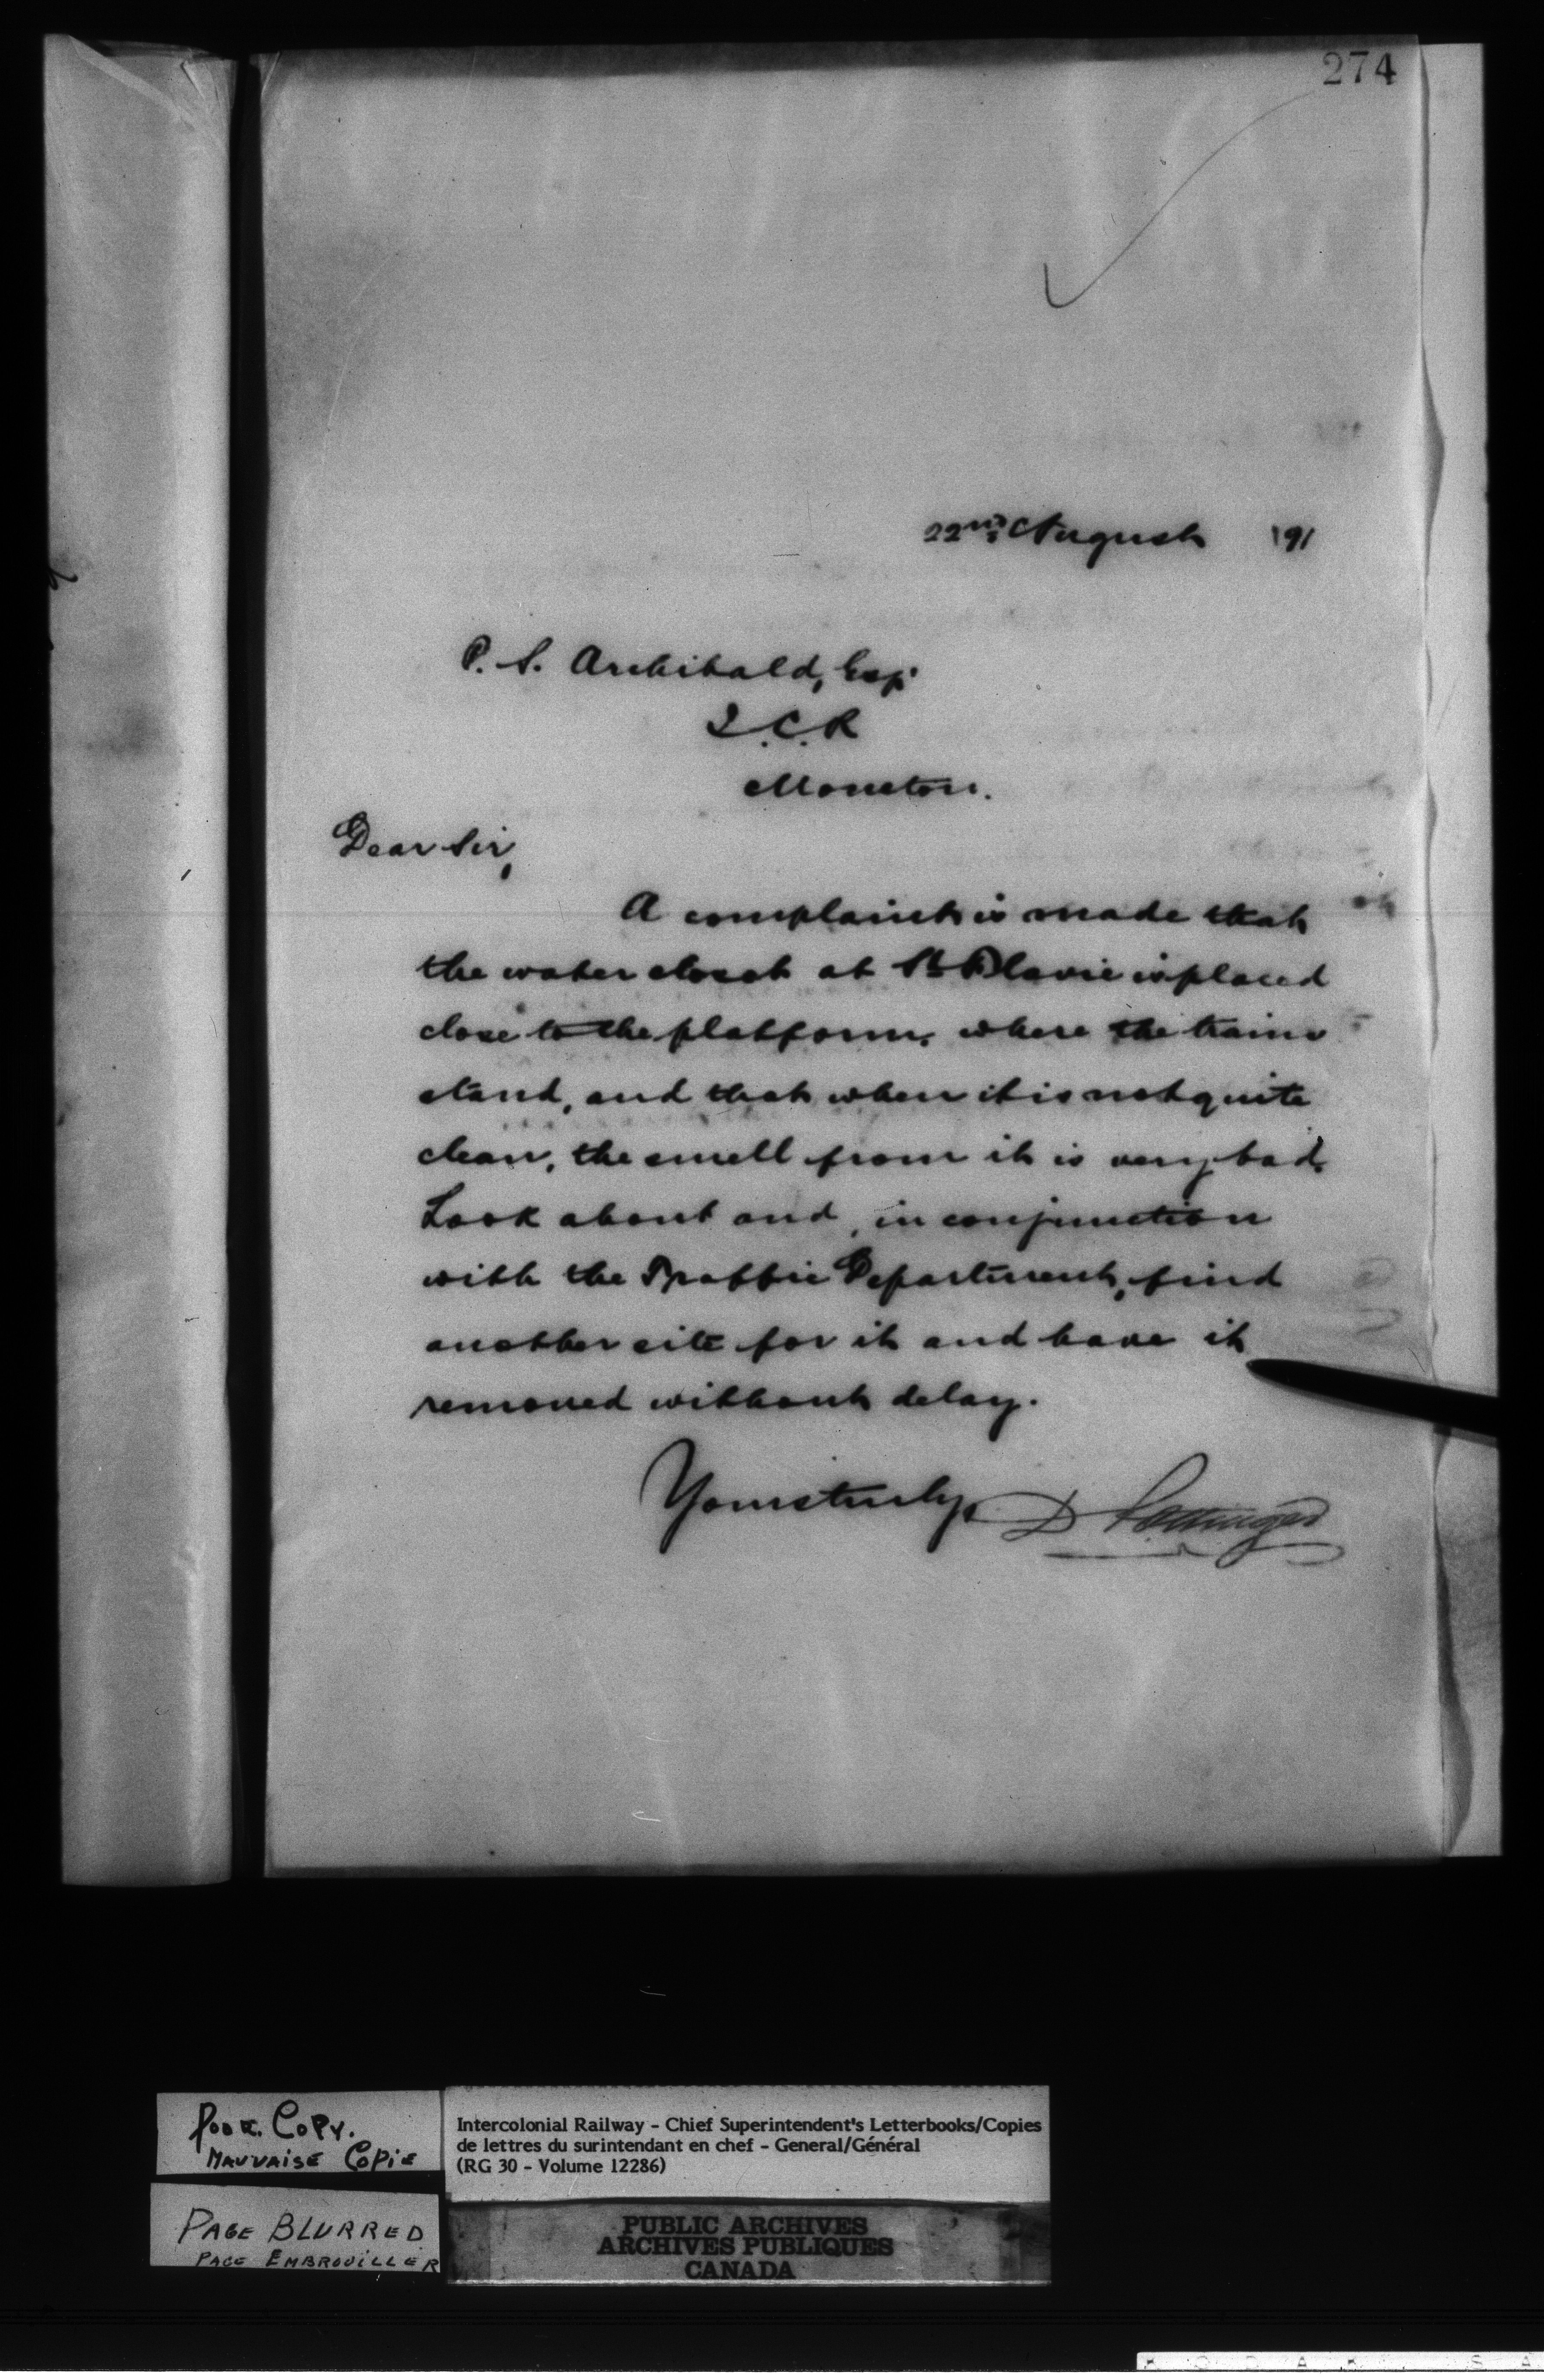 274
22nd August '91
P. S. Archibald, Esq.
I.C.R
Moncton.
Dear Sir,
A complaint is made that
the water closet at St Flavie is placed
close to the platform, where the trains
stand, and that when it is not quite
clean, the smell from it is very bad.
Look about and, in conjunction
with the Traffic Department, find
another site for it and have it
removed without delay.
Yours truly, D Pottinger
Poor. Copy.
Mauvaise Copie
Intercolonial Railway - Chief Superintendent's Letterbooks/Copies
de lettres du surintendant en chef - General/Général
(RG 30 - Volume 12286)
Page Blurred
Page Embrouiller
PUBLIC ARCHIVES
ARCHIVES PUBLIQUES
CANADA